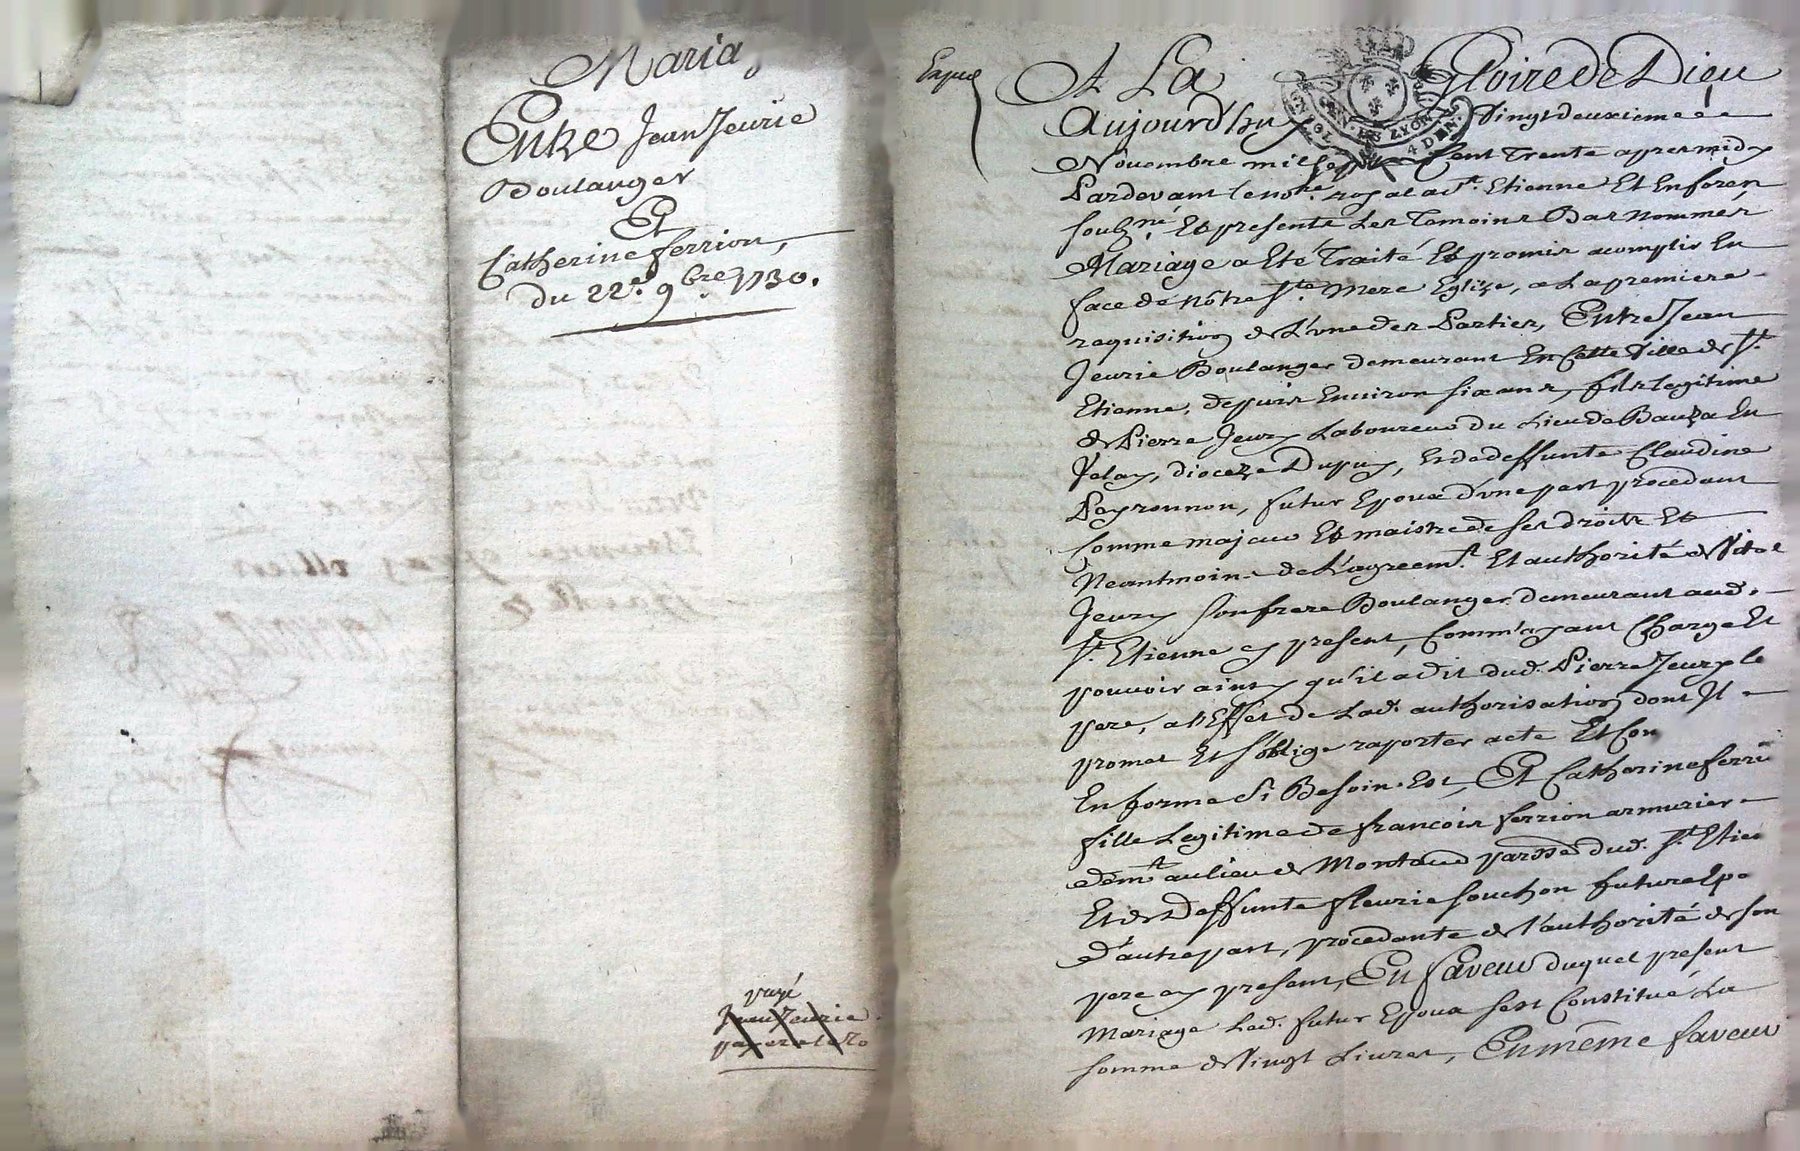 Mariage
Entre Jean Jeurie
Boulanger
Et
Catherine ferrion,
du 22e. 9bre. 1730.
payé
Jean Jeurie
payera
A La Gloire de Dieu
Aujourdhuy Vingtdeuxieme
GEN. DE LYON
4 DEN.
Novembre mil sept Cent Trente apres midy
Pardevant le notre. royal a St. Etienne Et En forên
soubzné. Et presents Les Temoins Bas Nommés,
Mariage a Eté Traité Et promis acomplir En
face de nôtre Ste. Mere Eglize, a La premiere
requisition de L'une des Parties, Entre Jean
Jeurie Boulanger demeurant En Cette Ville de St.
Etienne, depuis Environ six ans, fils legitime
de Pierre Jeury Laboureur du Lieu de Bauza En
Velay, dioceze Dupuy, et de deffunte Claudine
Peyronnon, futur Epoux d'une part procedant
Comme majeur Et maistre de ses droits Et
Neantmoins de L'agreemt. Et authorité de Vital
Jeury son frere Boulanger demeurant aud.
St. Etienne cy present, Comm'ayant Charge Et
pouvoir ainsy qu'il a dit dud. Pierre Jeury le
pere, a l'Effet de Lad. authorisation dont Il
promet Et s'oblige raporter acte Et Con
En forme Si Besoin Est, Et Catherine ferri
fille Legitime de francois ferrion armurier
demt. au lieu de Montaud parsse dud. St. Etien
Et de Deffunte fleurie souchon future Epo
d'autre part, procedante de l'authorité de son
pere cy present, En faveur duquel present
Mariage Led. futur Epoux sest Constitué La
somme de Vingt Livres, En même faveur